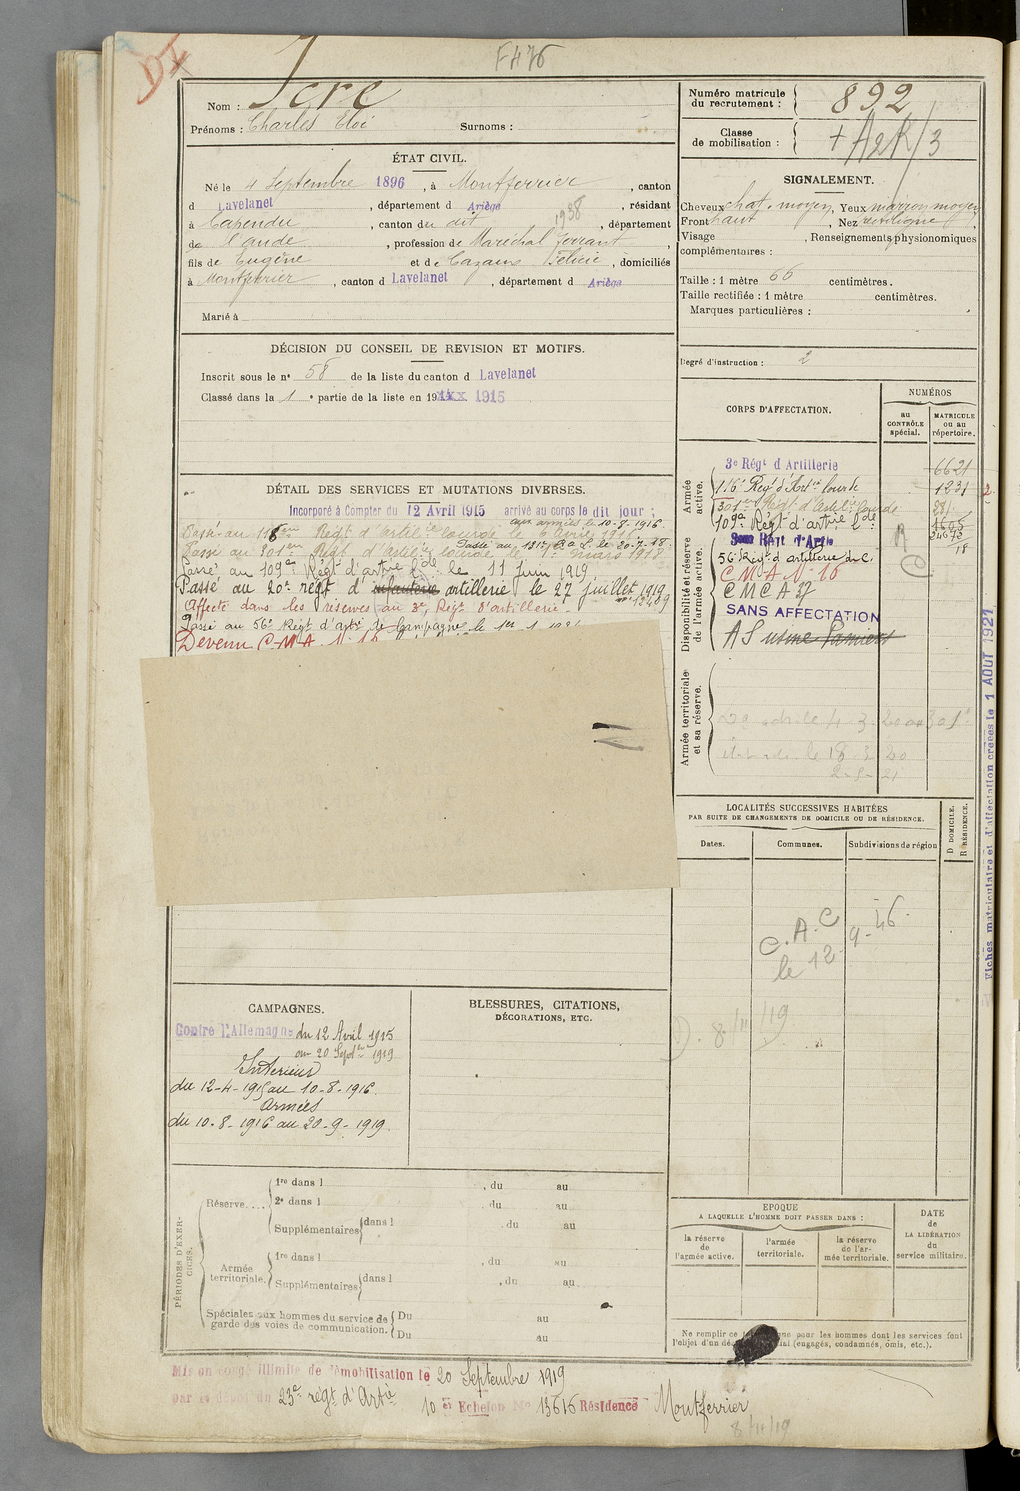 DI
F476
Nom : Icre
Prénoms : Charles Eloi Surnoms :
Numéro matricule du recrutement : 892
Classe de mobilisation : + A2R/3
ÉTAT CIVIL.
Né le 4 Septembre 1896, à Montferrier, canton
d Lavelanet, département d Ariège, résidant
à Capendu, canton du dit 1938, département
de l'Aude, profession de Maréchal ferrant,
fils de Eugène et de Cazaux Félicie, domiciliés
à Montferrier, canton d Lavelanet, département d Ariège
Marié à
SIGNALEMENT.
Cheveux chat. moyen, Yeux marron moyen
Front haut, Nez rectiligne
Visage , Renseignements physionomiques
complémentaires :
Taille : 1 mètre 66 centimètres.
Taille rectifiée : 1 mètre centimètres.
Marques particulières :
Degré d'instruction : 2
DÉCISION DU CONSEIL DE REVISION ET MOTIFS.
Inscrit sous le n° 58 de la liste du canton d Lavelanet
Classé dans la 1 e partie de la liste en 19 1915
CORPS D'AFFECTATION.
NUMÉROS
au CONTRÔLE spécial.
MATRICULE ou au répertoire.
Armée active.
3e Régt d Artillerie 6621
116e Régt d'Artie lourde 1231 2
301eme Régt d'artilie lourde
109e Régt d'artrie lde
Disponibilité et réserve de l'armée active.
56e Régt d'artillerie de C.
C M A N° 16
C M C A 37
SANS AFFECTATION
A S usine Pamiers
R
C
Armée territoriale et sa réserve.
DÉTAIL DES SERVICES ET MUTATIONS DIVERSES.
Incorporé à Compter du 12 Avril 1915 arrivé au corps le dit jour ;
aux armées le 10-8-1916
Passé au 116eme Régt d'Artilie lourde le 6 Avril 1916
Passé au 301eme Régt d'Artilie lourde le 1er mars 1918
Passé au 109e Régt d'artrie lde le 11 Juin 1919
Passé au 20e régt d'infanterie artillerie le 27 juillet 1919
Affecté dans les réserves au 3e Régt d'artillerie.
Passé au 56e Régt d'artie de Campagne le 1er
Devenu C M A N° 16
Fiches matriculaire et d'affectation créées le 1 AOUT 1927
LOCALITÉS SUCCESSIVES HABITÉES
PAR SUITE DE CHANGEMENTS DE DOMICILE OU DE RÉSIDENCE.
Dates. Communes. Subdivisions de région
D. DOMICILE. R. RÉSIDENCE.
C.A.C
le 12-9-46.
D. 8/11/19
CAMPAGNES.
Contre l'Allemagne du 12 Avril 1915
au 20 Septbre 1919
Intérieur
du 12-4-1915 au 10-8-1916.
Armées
du 10-8-1916 au 20-9-1919.
BLESSURES, CITATIONS,
DÉCORATIONS, ETC.
PÉRIODES D'EXERCICES.
Réserve....
1re dans l , du au
2e dans l , du au
Supplémentaires dans l , du au
Armée territoriale.
1re dans l , du au
Supplémentaires dans l , du au
Spéciales aux hommes du service de garde des voies de communication.
Du au
Du au
EPOQUE
A LAQUELLE L'HOMME DOIT PASSER DANS :
la réserve de l'armée active.
l'armée territoriale.
la réserve de l'armée territoriale.
DATE de LA LIBÉRATION du service militaire.
Ne remplir ce pour les hommes dont les services font
l'objet d'un (engagés, condamnés, omis, etc.).
Mis en congé illimité de démobilisation le 20 Septembre 1919
par le dépôt du 23e régt d'Artie 10 e Echelon No 13616 Résidence Montferrier
8/11/19